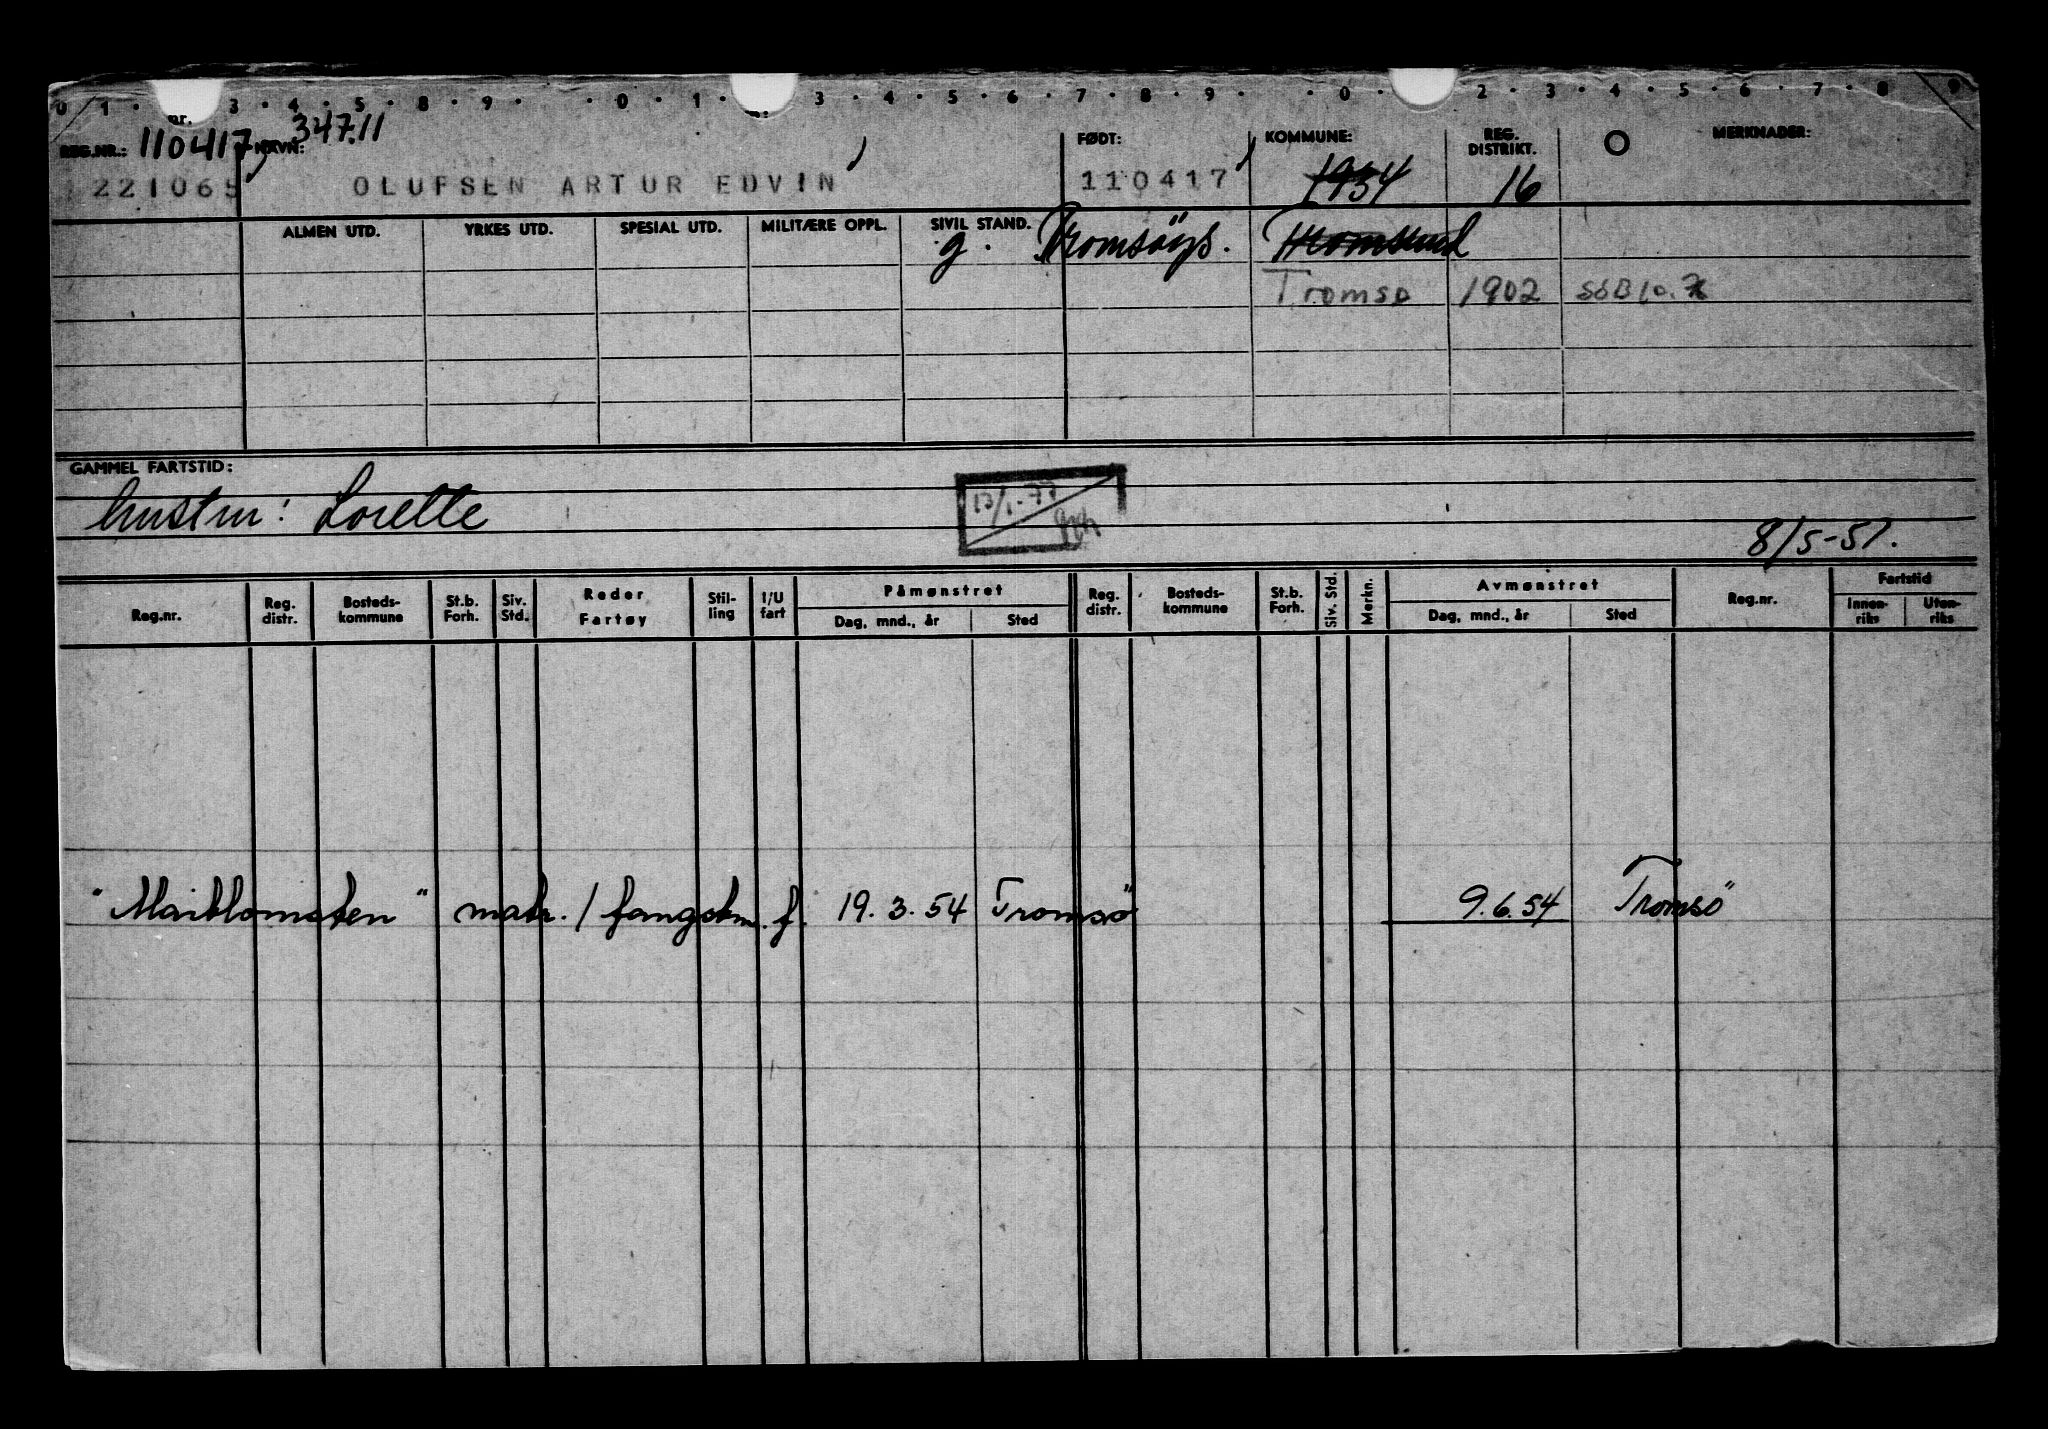 0 1 · 3 · 4 · 5 · 8 · 9 · · 0 · 1 · 3 · 4 · 5 · 6 · 7 · 8 · 9 · · 0 · 2 · 3 · 4 · 5 · 6 · 7 · 8 · 9
nr.
REG.NR.: 110417 NAVN: 347.11 FØDT: KOMMUNE: REG. DISTRIKT. MERKNADER:
221065 OLUFSEN ARTUR EDVIN 110417 1934 16
ALMEN UTD. YRKES UTD. SPESIAL UTD. MILITÆRE OPPL. SIVIL STAND.
g. Tromsöys. Tromsund
Tromsø 1902
GAMMEL FARTSTID:
hustru: Lorette
13/1-77
8/5-51.
Reg.nr. Reg. distr. Bosteds-kommune St.b. Forh. Siv. Std. Reder Fartøy Stil-ling I/U fart Påmønstret Dag, mnd., år Sted Reg. distr. Bosteds-kommune St.b. Forh. Siv. Std. Merkn. Avmønstret Dag, mnd., år Sted Reg.nr. Fartstid Innen-riks Uten-riks
"Maiblomsten" matr. / fangstm. f. 19.3.54 Tromsö 9.6.54 Tromsö